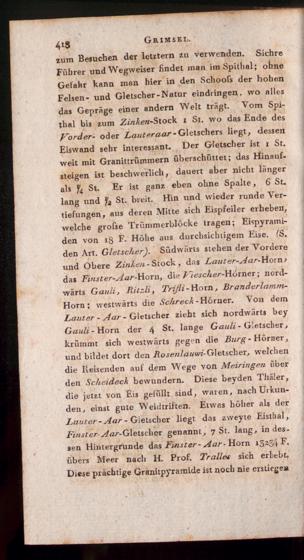 418 GRIMSEL.
zum Besuchen der letztern zu verwenden. Sichre
Führer und Wegweiser findet man im Spithal; ohne
Gefahr kann man hier in den Schoofs der hohen
Felsen- und Gletscher-Natur eindringen, wo alles
das Gepräge einer andern Welt trägt. Vom Spi-
thal bis zum Zinken-Stock 1 St. wo das Ende des
Vorder- oder Lauteraar-Gletschers liegt, dessen
Eiswand sehr interessant. Der Gletscher ist 1 St.
weit mit Granittrümmern überschüttet; das Hinauf-
steigen ist beschwerlich, dauert aber nicht länger
als ¼ St. Er ist ganz eben ohne Spalte, 6 St.
lang und ½ St. breit. Hin und wieder runde Ver-
tiefungen, aus deren Mitte sich Eispfeiler erheben,
welche große Trümmerblöcke tragen; Eispyrami-
den von 18 F. Höhe aus durchsichtigem Eise. (S.
den Art. Gletscher). Südwärts stehen der Vordere
und Obere Zinken-Stock, das Lauter-Aar-Horn,
das Finster-Aar-Horn, die Viescher-Hörner; nord-
wärts Gauli, Ritzli, Trifli-Horn, Branderlamm-
Horn; westwärts die Schreck-Hörner. Von dem
Lauter-Aar-Gletscher zieht sich nordwärts bey
Gauli-Horn der 4 St. lange Gauli-Gletscher,
krümmt sich westwärts gegen die Burg-Hörner,
und bildet dort den Rosenlauwi-Gletscher, welchen
die Reisenden auf dem Wege von Meiringen über
den Scheideck bewundern. Diese beyden Thäler,
die jetzt von Eis gefüllt sind, waren, nach Urkun-
den, einst gute Weidtriften. Etwas höher als der
Lauter-Aar-Gletscher liegt das zweyte Eisthal,
Finster-Aar-Gletscher genannt, 7 St. lang, in des-
sen Hintergrunde das Finster-Aar-Horn 13234 F.
übers Meer nach H. Prof. Tralles sich erhebt.
Diese prächtige Granitpyramide ist noch nie erstiegen